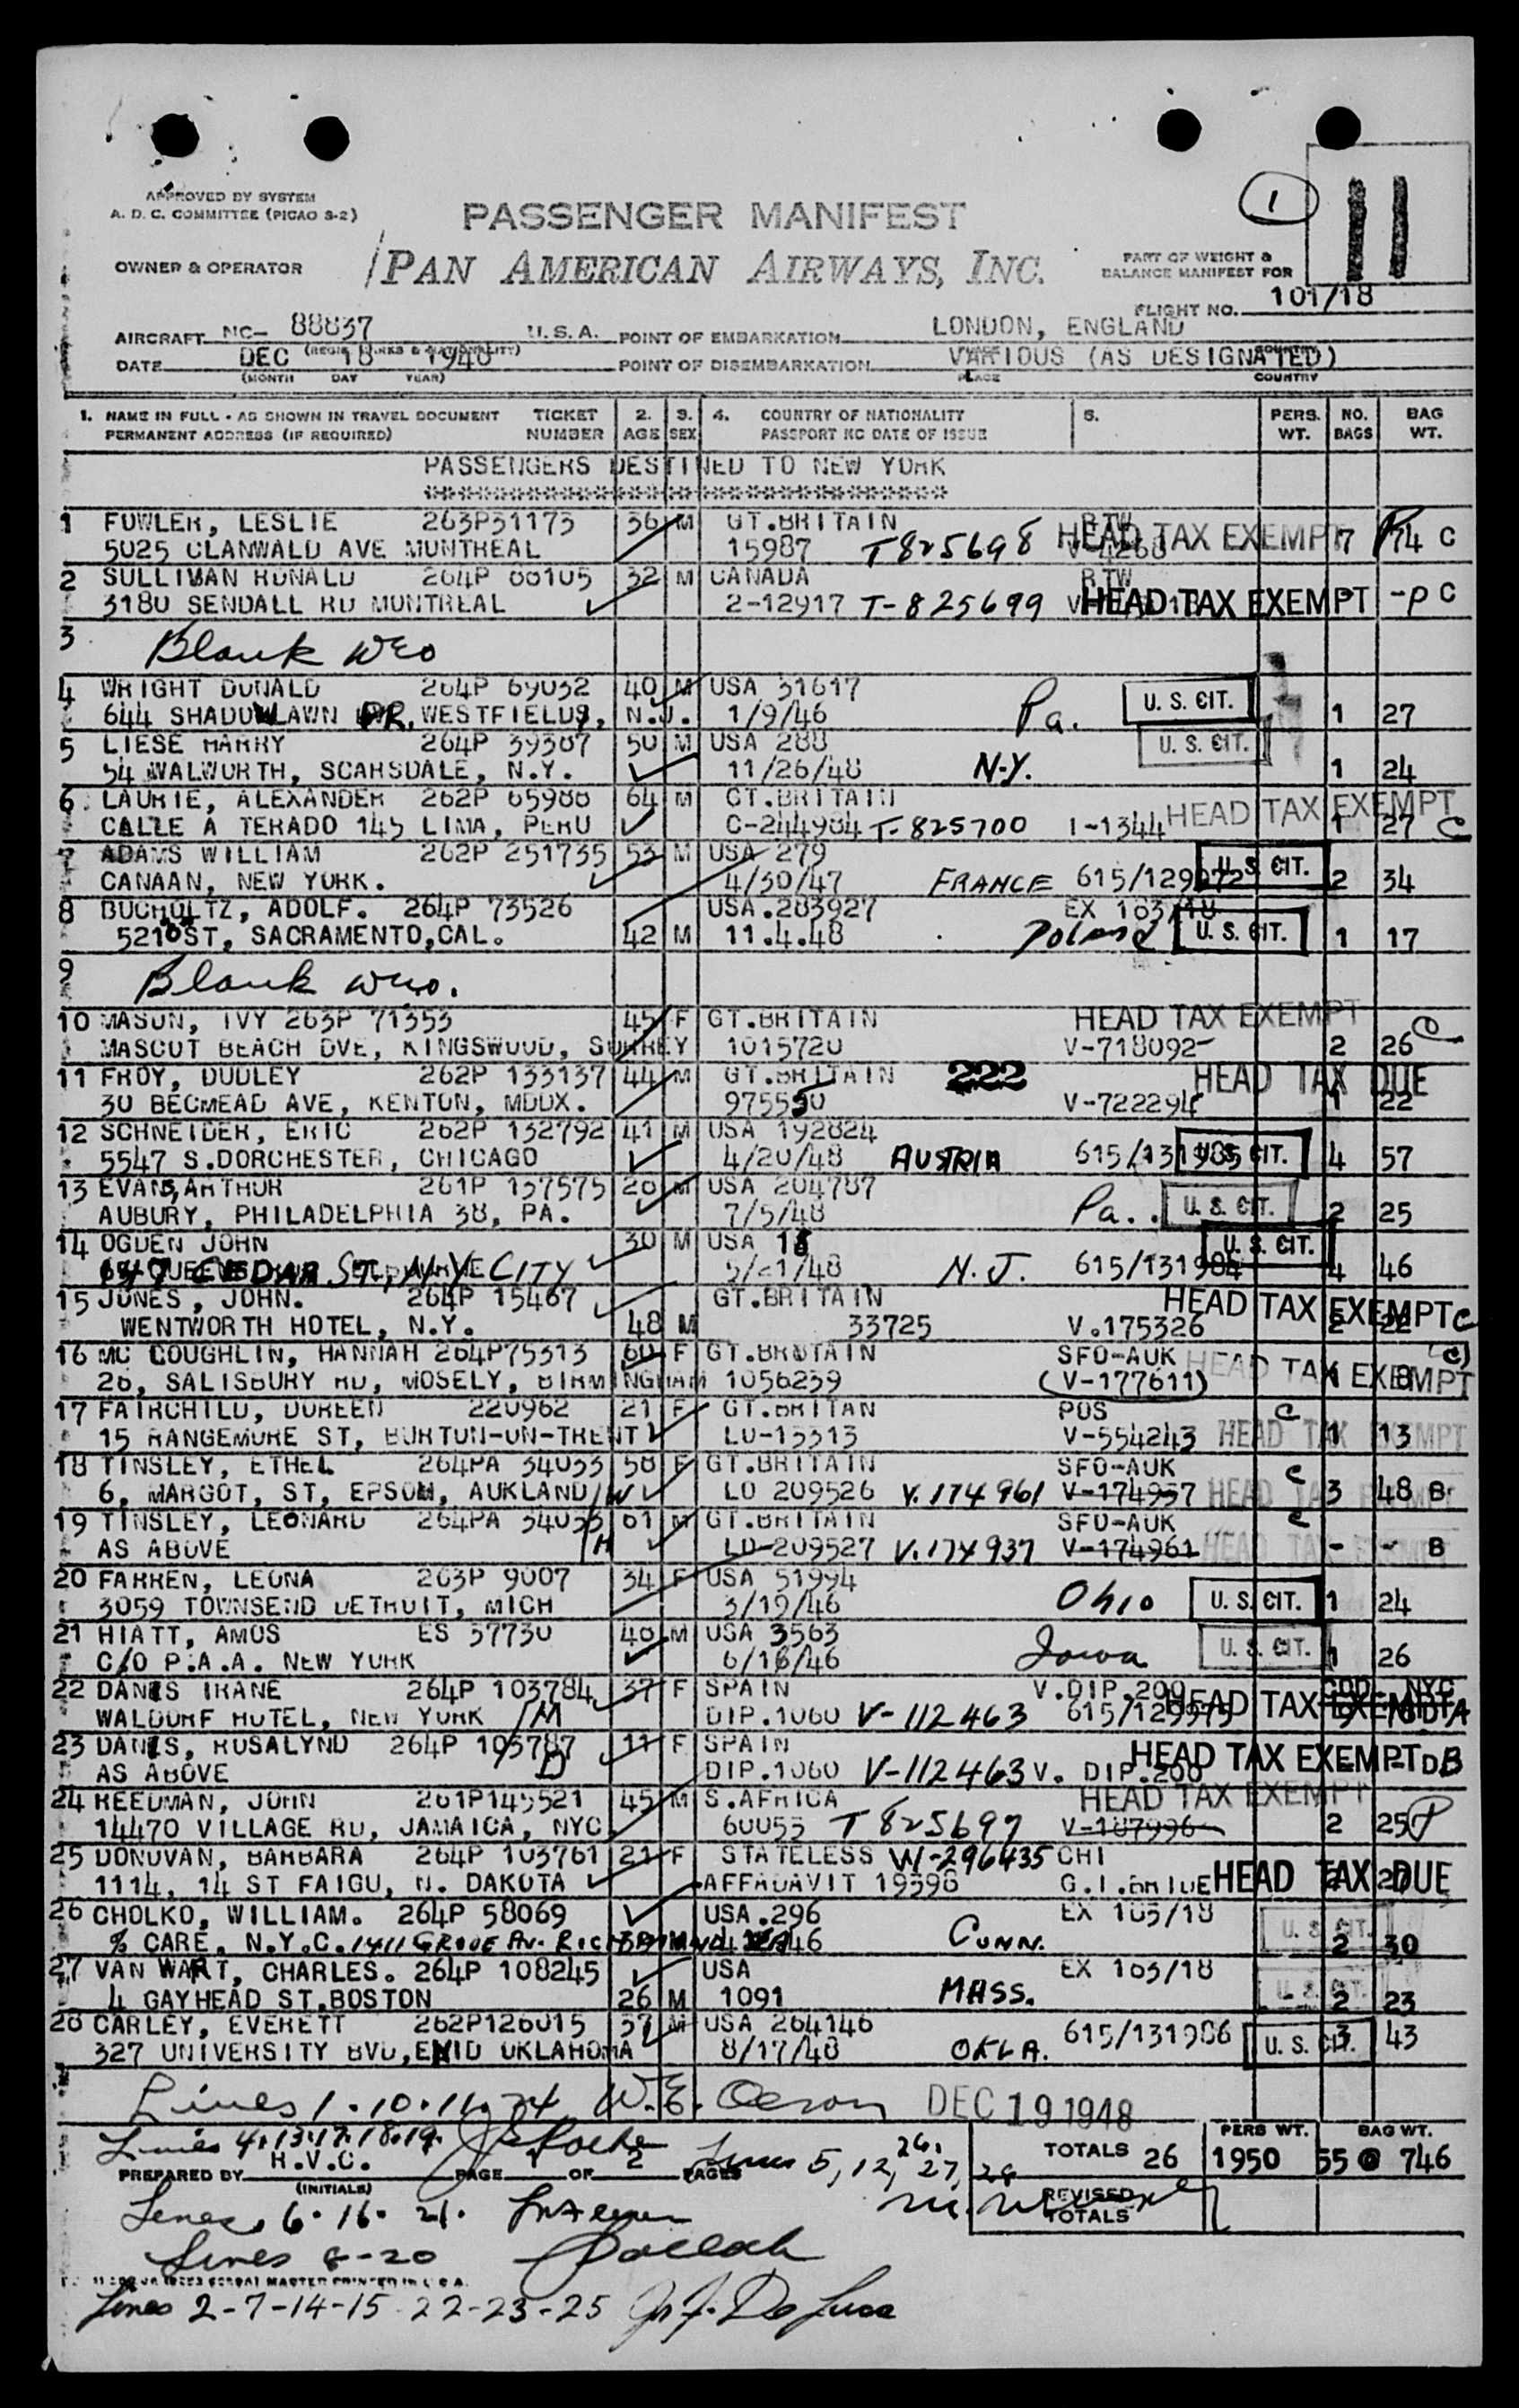 APPROVED BY SYSTEM
A. D. C. COMMITTEE (PICAO S-2)
PASSENGER MANIFEST
1
11
OWNER & OPERATOR
PAN AMERICAN AIRWAYS, INC.
PART OF WEIGHT &
BALANCE MANIFEST FOR
FLIGHT NO. 101/18
AIRCRAFT NC- 88837 U.S.A. POINT OF EMBARKATION LONDON, ENGLAND
(REGIS. MARKS & NATIONALITY)
DATE DEC 18 POINT OF DISEMBARKATION VARIOUS (AS DESIGNATED)
(MONTH DAY YEAR) PLACE COUNTRY
1. NAME IN FULL - AS SHOWN IN TRAVEL DOCUMENT TICKET 2. 3. 4. COUNTRY OF NATIONALITY 5. PERS. NO. BAG
PERMANENT ADDRESS (IF REQUIRED) NUMBER AGE SEX PASSPORT NO DATE OF ISSUE WT. BAGS WT.
PASSENGERS DESTINED TO NEW YORK
1 FOWLER, LESLIE 263P31173 36 M GT.BRITAIN RTW
5025 CLANWALD AVE MONTREAL 15987 T825698 HEAD TAX EXEMPT 74 C
2 SULLIVAN RONALD 264P 32 M CANADA RTW
3180 SENDALL RD MONTREAL 2-12917 T-825699 HEAD TAX EXEMPT -P C
3 Blank WEO
4 WRIGHT DONALD 264P 69032 40 M USA 31617
644 SHADOWLAWN DR. WESTFIELD, N.J. 1/9/46 Pa. U. S. CIT. 1 27
5 LIESE HARRY 264P 39387 50 M USA 288
54 WALWORTH, SCARSDALE, N.Y. 11/26/48 N.Y. U. S. CIT. 1 24
6 LAURIE, ALEXANDER 262P 65988 64 M GT.BRITAIN
CALLE A TERADO 145 LIMA, PERU C-244984 T-825700 I-1344 HEAD TAX EXEMPT 1 27 C
7 ADAMS WILLIAM 262P 251735 53 M USA 279
CANAAN, NEW YORK. 4/30/47 FRANCE 615/129972 U. S. CIT. 2 34
8 BUCHOLTZ, ADOLF. 264P 73526 USA.283927 EX 103/18
ST, SACRAMENTO,CAL. 42 M 11.4.48 Poland U. S. CIT. 1 17
9 Blank WEO.
10 MASON, IVY 263P 71353 45 F GT.BRITAIN HEAD TAX EXEMPT
MASCOT BEACH DVE, KINGSWOOD, SURREY 1015720 V-718092 2 26 C
11 FROY, DUDLEY 262P 133137 44 M GT.BRITAIN 222 HEAD TAX DUE
30 BECMEAD AVE, KENTON, MDDX. 975550 V-722294 1 22
12 SCHNEIDER, ERIC 262P 132792 41 M USA 192824
5547 S.DORCHESTER, CHICAGO 4/20/48 AUSTRIA 615/131985 U. S. CIT. 4 57
13 EVANS, ARTHUR 261P 137575 28 M USA 204787
AUBURY, PHILADELPHIA 38, PA. 7/5/48 Pa. U. S. CIT. 2 25
14 OGDEN JOHN 30 M USA 18
CEDAR ST, N.Y. CITY 5/21/48 N.J. 615/131984 U. S. CIT. 4 46
15 JONES, JOHN. 264P 15467 GT.BRITAIN HEAD TAX EXEMPT C
WENTWORTH HOTEL, N.Y. 48 M 33725 V.175326 2 22
16 MC COUGHLIN, HANNAH 264P75313 60 F GT.BRITAIN SFO-AUK (C)
28, SALISBURY RD, MOSELY, BIRMINGHAM 1056239 (V-177611) HEAD TAX EXEMPT
17 FAIRCHILD, DOREEN 220962 21 F GT.BRITAN POS C
15 RANGEMORE ST, BURTON-ON-TRENT LO-13313 V-554243 HEAD TAX EXEMPT 1 13
18 TINSLEY, ETHEL 264PA 34033 58 F GT.BRITAIN SFO-AUK C
6, MARGOT, ST, EPSOM, AUKLAND /W LO 209526 V.174961 V-174937 HEAD TAX EXEMPT 3 48 B
19 TINSLEY, LEONARD 264PA 34033 61 M GT.BRITAIN SFO-AUK C
AS ABOVE /H LO-209527 V.174937 V-174961 HEAD TAX EXEMPT - - B
20 FARREN, LEONA 263P 9007 34 F USA 51994
3059 TOWNSEND DETROIT, MICH 3/19/46 Ohio U. S. CIT. 1 24
21 HIATT, AMOS ES 37730 40 M USA 3563
C/O P.A.A. NEW YORK 6/18/46 Iowa U. S. CIT. 1 26
22 DANIS IRANE 264P 103784 37 F SPAIN V.DIP.200 NYC
WALDORF HOTEL, NEW YORK /M DIP.1060 V-112463 615/129975 HEAD TAX EXEMPT
23 DANIS, ROSALYND 264P 103787 11 F SPAIN HEAD TAX EXEMPT DB
AS ABOVE D DIP.1060 V-112463 V. DIP.200
24 REEDMAN, JOHN 261P145521 45 M S.AFRICA HEAD TAX EXEMPT
14470 VILLAGE RD, JAMAICA, NYC. 60053 T825697 V-187996 2 25 P
25 DONOVAN, BARBARA 264P 103761 21 F STATELESS W-296435 CHI
1114, 14 ST FAIGU, N. DAKOTA AFFADAVIT 19398 G.I.BRIDE HEAD TAX DUE
26 CHOLKO, WILLIAM. 264P 58069 USA.296 EX 103/18
% CARE, N.Y.C. 1411 GROVE AV. RICHMOND VA 46 CONN. U. S. CIT. 2 30
27 VAN WART, CHARLES. 264P 108245 USA EX 103/18
4 GAYHEAD ST.BOSTON 26 M 1091 MASS. U. S. CIT. 2 23
28 CARLEY, EVERETT 262P126015 37 M USA 264146
327 UNIVERSITY BVD, ENID OKLAHOMA 8/17/48 OKLA. 615/131986 U. S. CIT. 3 43
Lines 1.10.11.24 W.E. DEC 19 1948
Lines 4.13.17.18.19. Lines 5, 12, 26, 27, 28
TOTALS 26 PERS WT. 1950 55 BAG WT. 746
PREPARED BY H.V.C. PAGE 1 OF 2 PAGES
(INITIALS)
REVISED TOTALS
Lines 6.16.21.
Lines 8-20
Lines 2-7-14-15 22-23-25